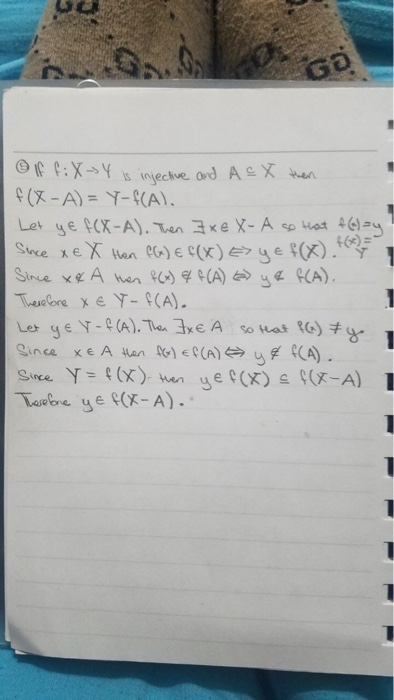 GO GO GO GO
⑤ If f: X→Y is injective and A ⊆ X then
f(X-A) = Y-f(A).
Let y∈ f(X-A). Then ∃x∈ X-A so that f(x)=y
Since x∈X then f(x)∈f(X) ⟺ y∈f(X). f(x)=y
Since x∉A then f(x)∉f(A) ⟺ y∉f(A).
Therefore x∈ Y-f(A).
Let y∈ Y-f(A). Then ∃x∈A so that f(x)≠y.
Since x∈A then f(x)∈f(A) ⟺ y∉f(A).
Since Y=f(X) then y∈f(X) ⊆ f(X-A)
Therefore y∈ f(X-A).